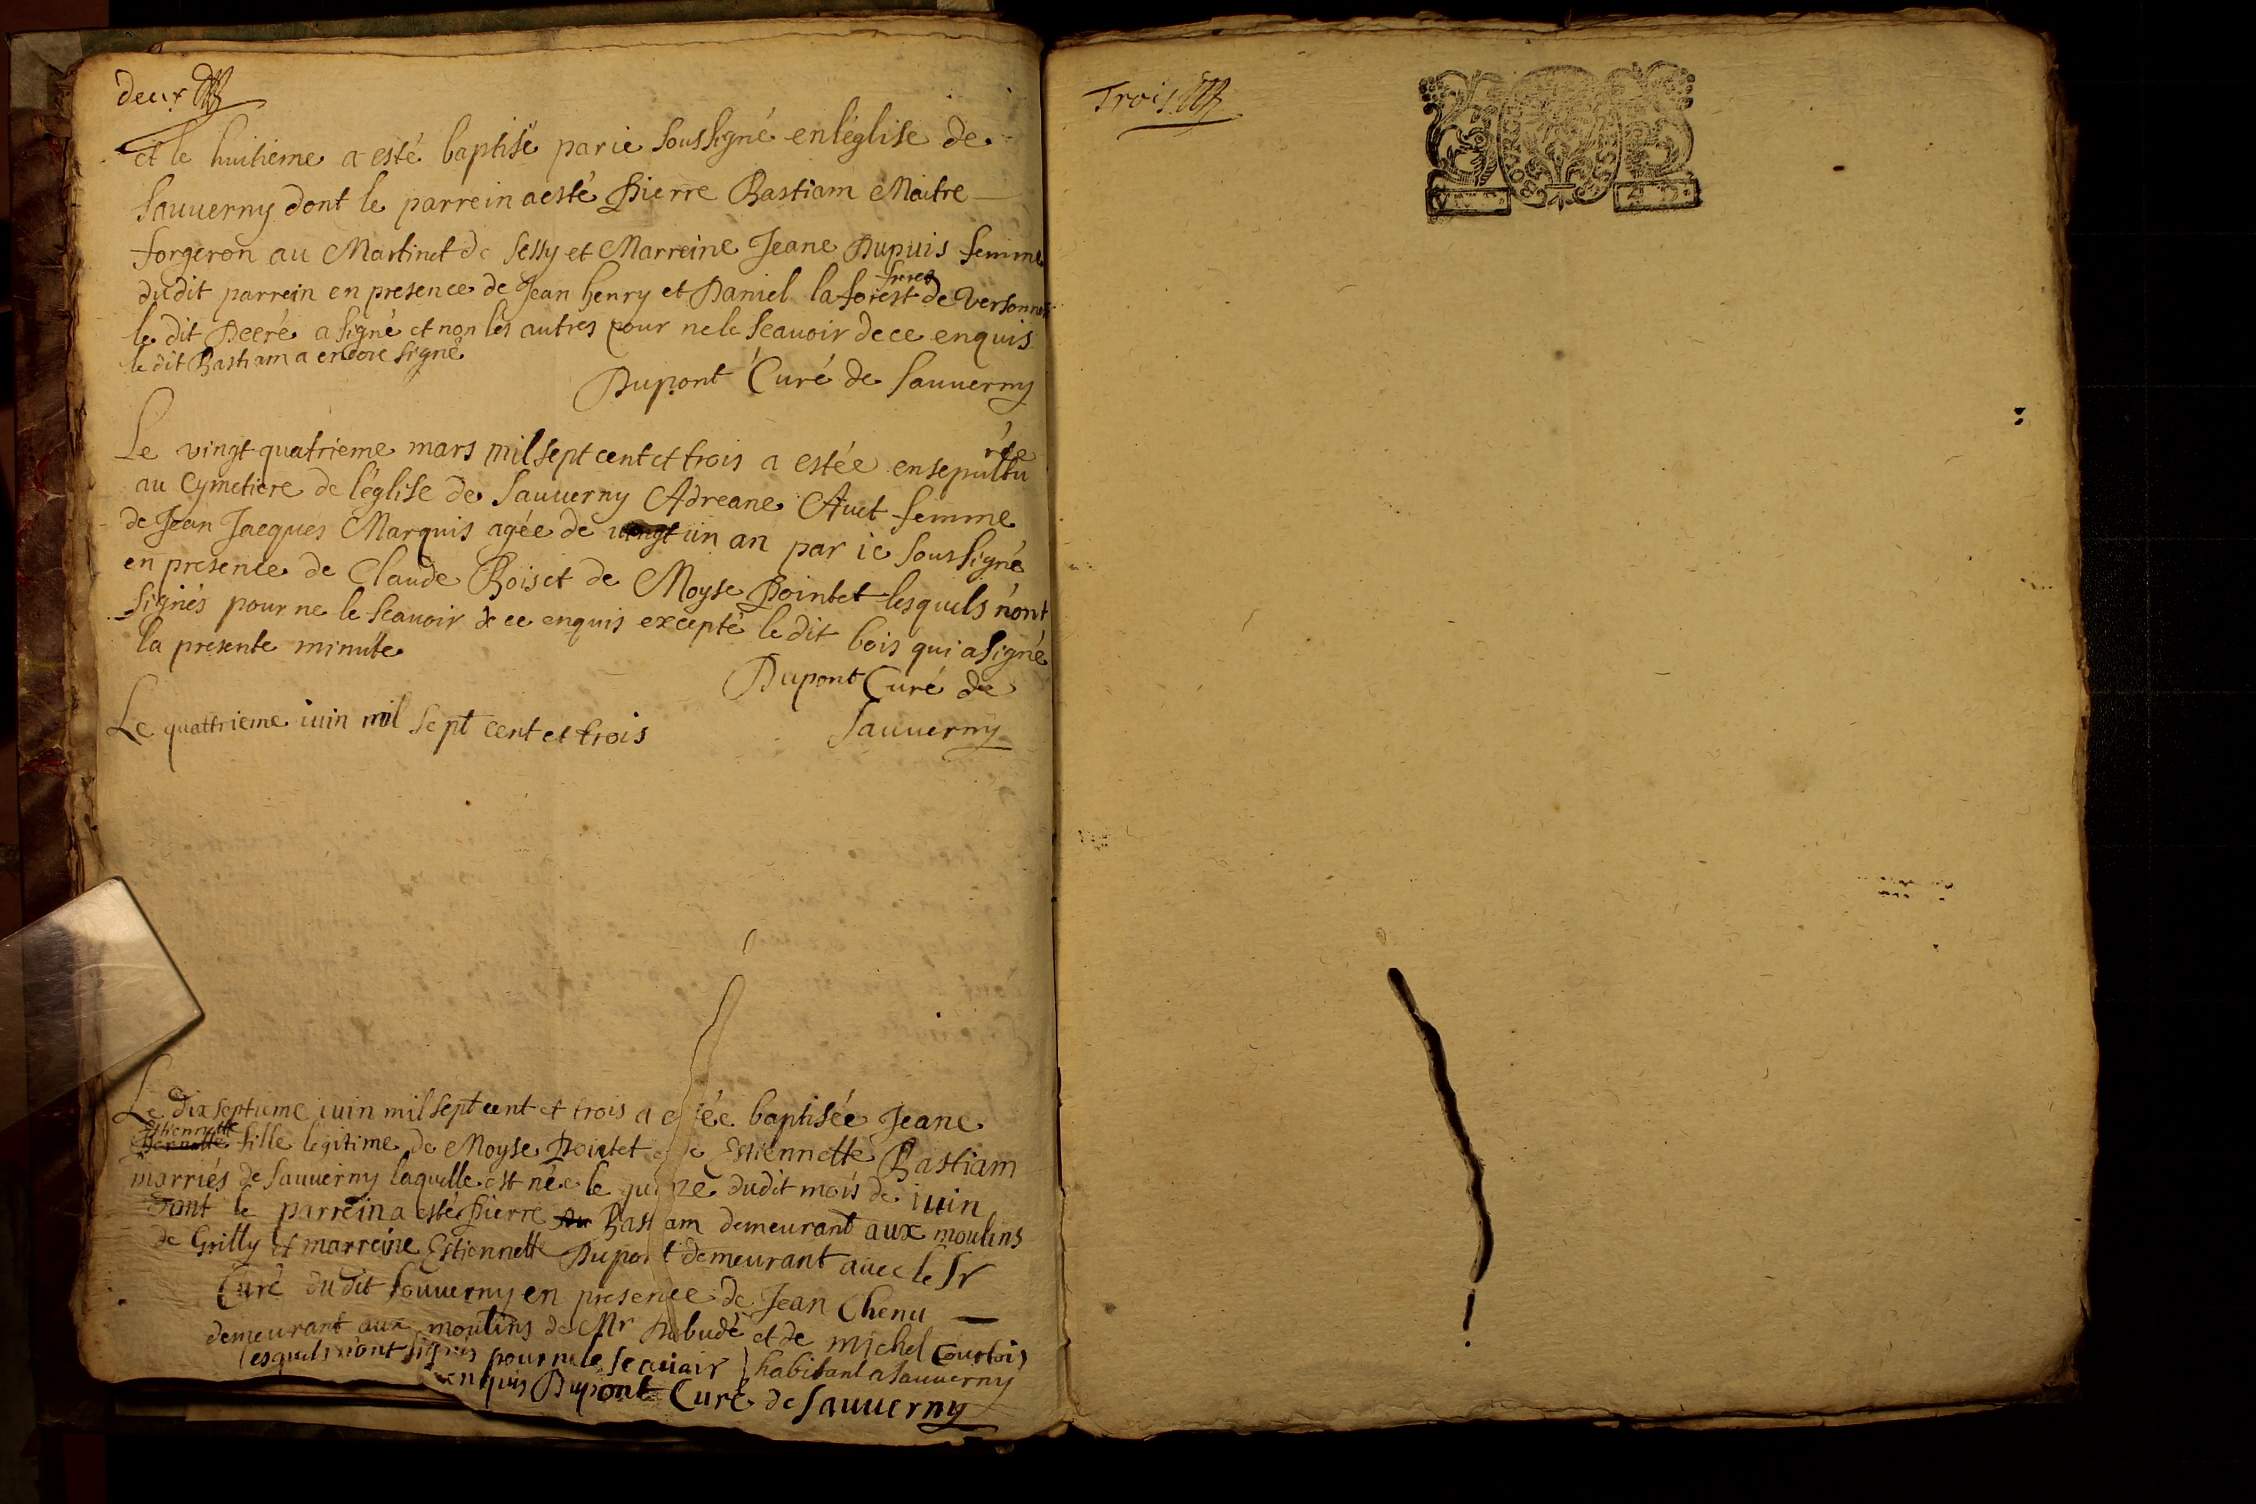 deux
et le huitieme a esté baptisé par ie soussigné en léglise de
sauuerny dont le parrein a esté Pierre Bastiam Maitre
forgeron au Martinet de sessy et Marreine Jeane Dupuis femme
dudit parrein en presence de Jean henry et Daniel la forest freres de Versonnex
le dit Decré a signé et non les autres pour ne le scauoir de ce enquis
le dit Bastiam a encore signé
Dupont Curé de sauuerny
Le vingt quatrieme mars mil sept cent et trois a estée ensepulturée
au Cymetiere de léglise de sauuerny Adreane Auet femme
de Jean Jacques Marquis agée de vingt un an par ie soussigné
en presence de Claude Bois et de Moyse Pointet lesquels n'ont
signés pour ne le scauoir de ce enquis excepté le dit bois qui a signé
la presente minutte
Dupont Curé de
sauuerny
Le quattrieme iuin mil sept cent et trois
Le dix septieme iuin mil sept cent et trois a estée baptisée Jeane
Estiennette
fille legitime de Moyse Pointet et de Estiennette Bastiam
marriés de sauuerny laquelle est née le quinze dudit mois de iuin
dont le parrein a esté Pierre Bastiam demeurant aux moulins
de Grilly et marreine Estiennette Dupont demeurant auec le Sr
Curé du dit sauuerny en presence de Jean Chenu
demeurant aux moulins de Mr Dabudé et de michel Courtois
habitant a sauuerny
lesquels n'ont signés pour ne le scauair
enquis Dupont Curé de sauuerny
Trois